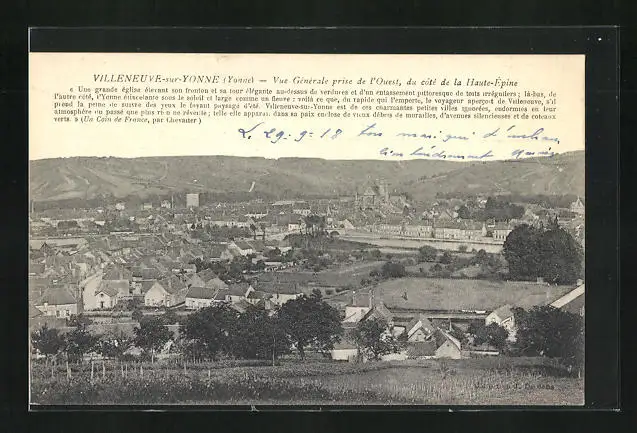 VILLENEUVE-sur-YONNE (Yonne) — Vue Générale prise de l'Ouest, du côté de la Haute-Épine
« Une grande église élevant son fronton et sa tour élégante au-dessus de verdures et d'un entassement pittoresque de toits irréguliers ; là-bas, de
l'autre côté, l'Yonne étincelante sous le soleil et large comme un fleuve : voilà ce que, du rapide qui l'emporte, le voyageur aperçoit de Villeneuve, s'il
prend la peine de suivre des yeux le fuyant paysage d'été. Villeneuve-sur-Yonne est de ces charmantes petites villes ignorées, endormies en leur
atmosphère du passé que plus rien ne réveille ; telle elle apparait dans sa paix enclose de vieux débris de murailles, d'avenues silencieuses et de coteaux
verts. » (Un Coin de France, par Chevalier)
L. 29-9-18